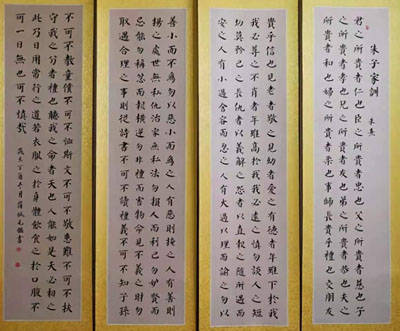 朱子家訓
朱熹
君之所貴者仁也臣之所貴者忠也父之所貴者慈也子
之所貴者孝也兄之所貴者友也弟之所貴者恭也夫之
所貴者和也婦之所貴者柔也事師長貴乎禮也交朋友
貴乎信也見老者敬之見幼者愛之有德者年雖下於我
我必尊之不肖者年雖高於我我必遠之慎勿談人之短
切莫矜己之長仇者以義解之怨者以直報之隨所遇而
安之人有小過含容而忍之人有大過以理而諭之勿以
善小而不為勿以惡小而為之人有惡則掩之人有善則
揚之處世無私仇治家無私法勿損人而利己勿妒賢而
忌能勿稱忿而報橫逆勿非禮而害物命見不義之財勿
取遇合理之事則從詩書不可不讀禮義不可不知子孫
不可不教童僕不可不恤斯文不可不敬患難不可不扶
守我之分者禮也聽我之命者天也人能如是天必相之
此乃日用常行之道若衣服之於身體飲食之於口腹不
可一日無也可不慎哉
丁酉年 書